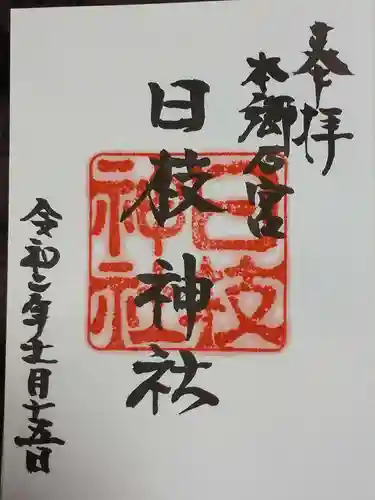 奉拝
本郷 宮
日枝神社
令和二年十一月十五日
日枝
神社